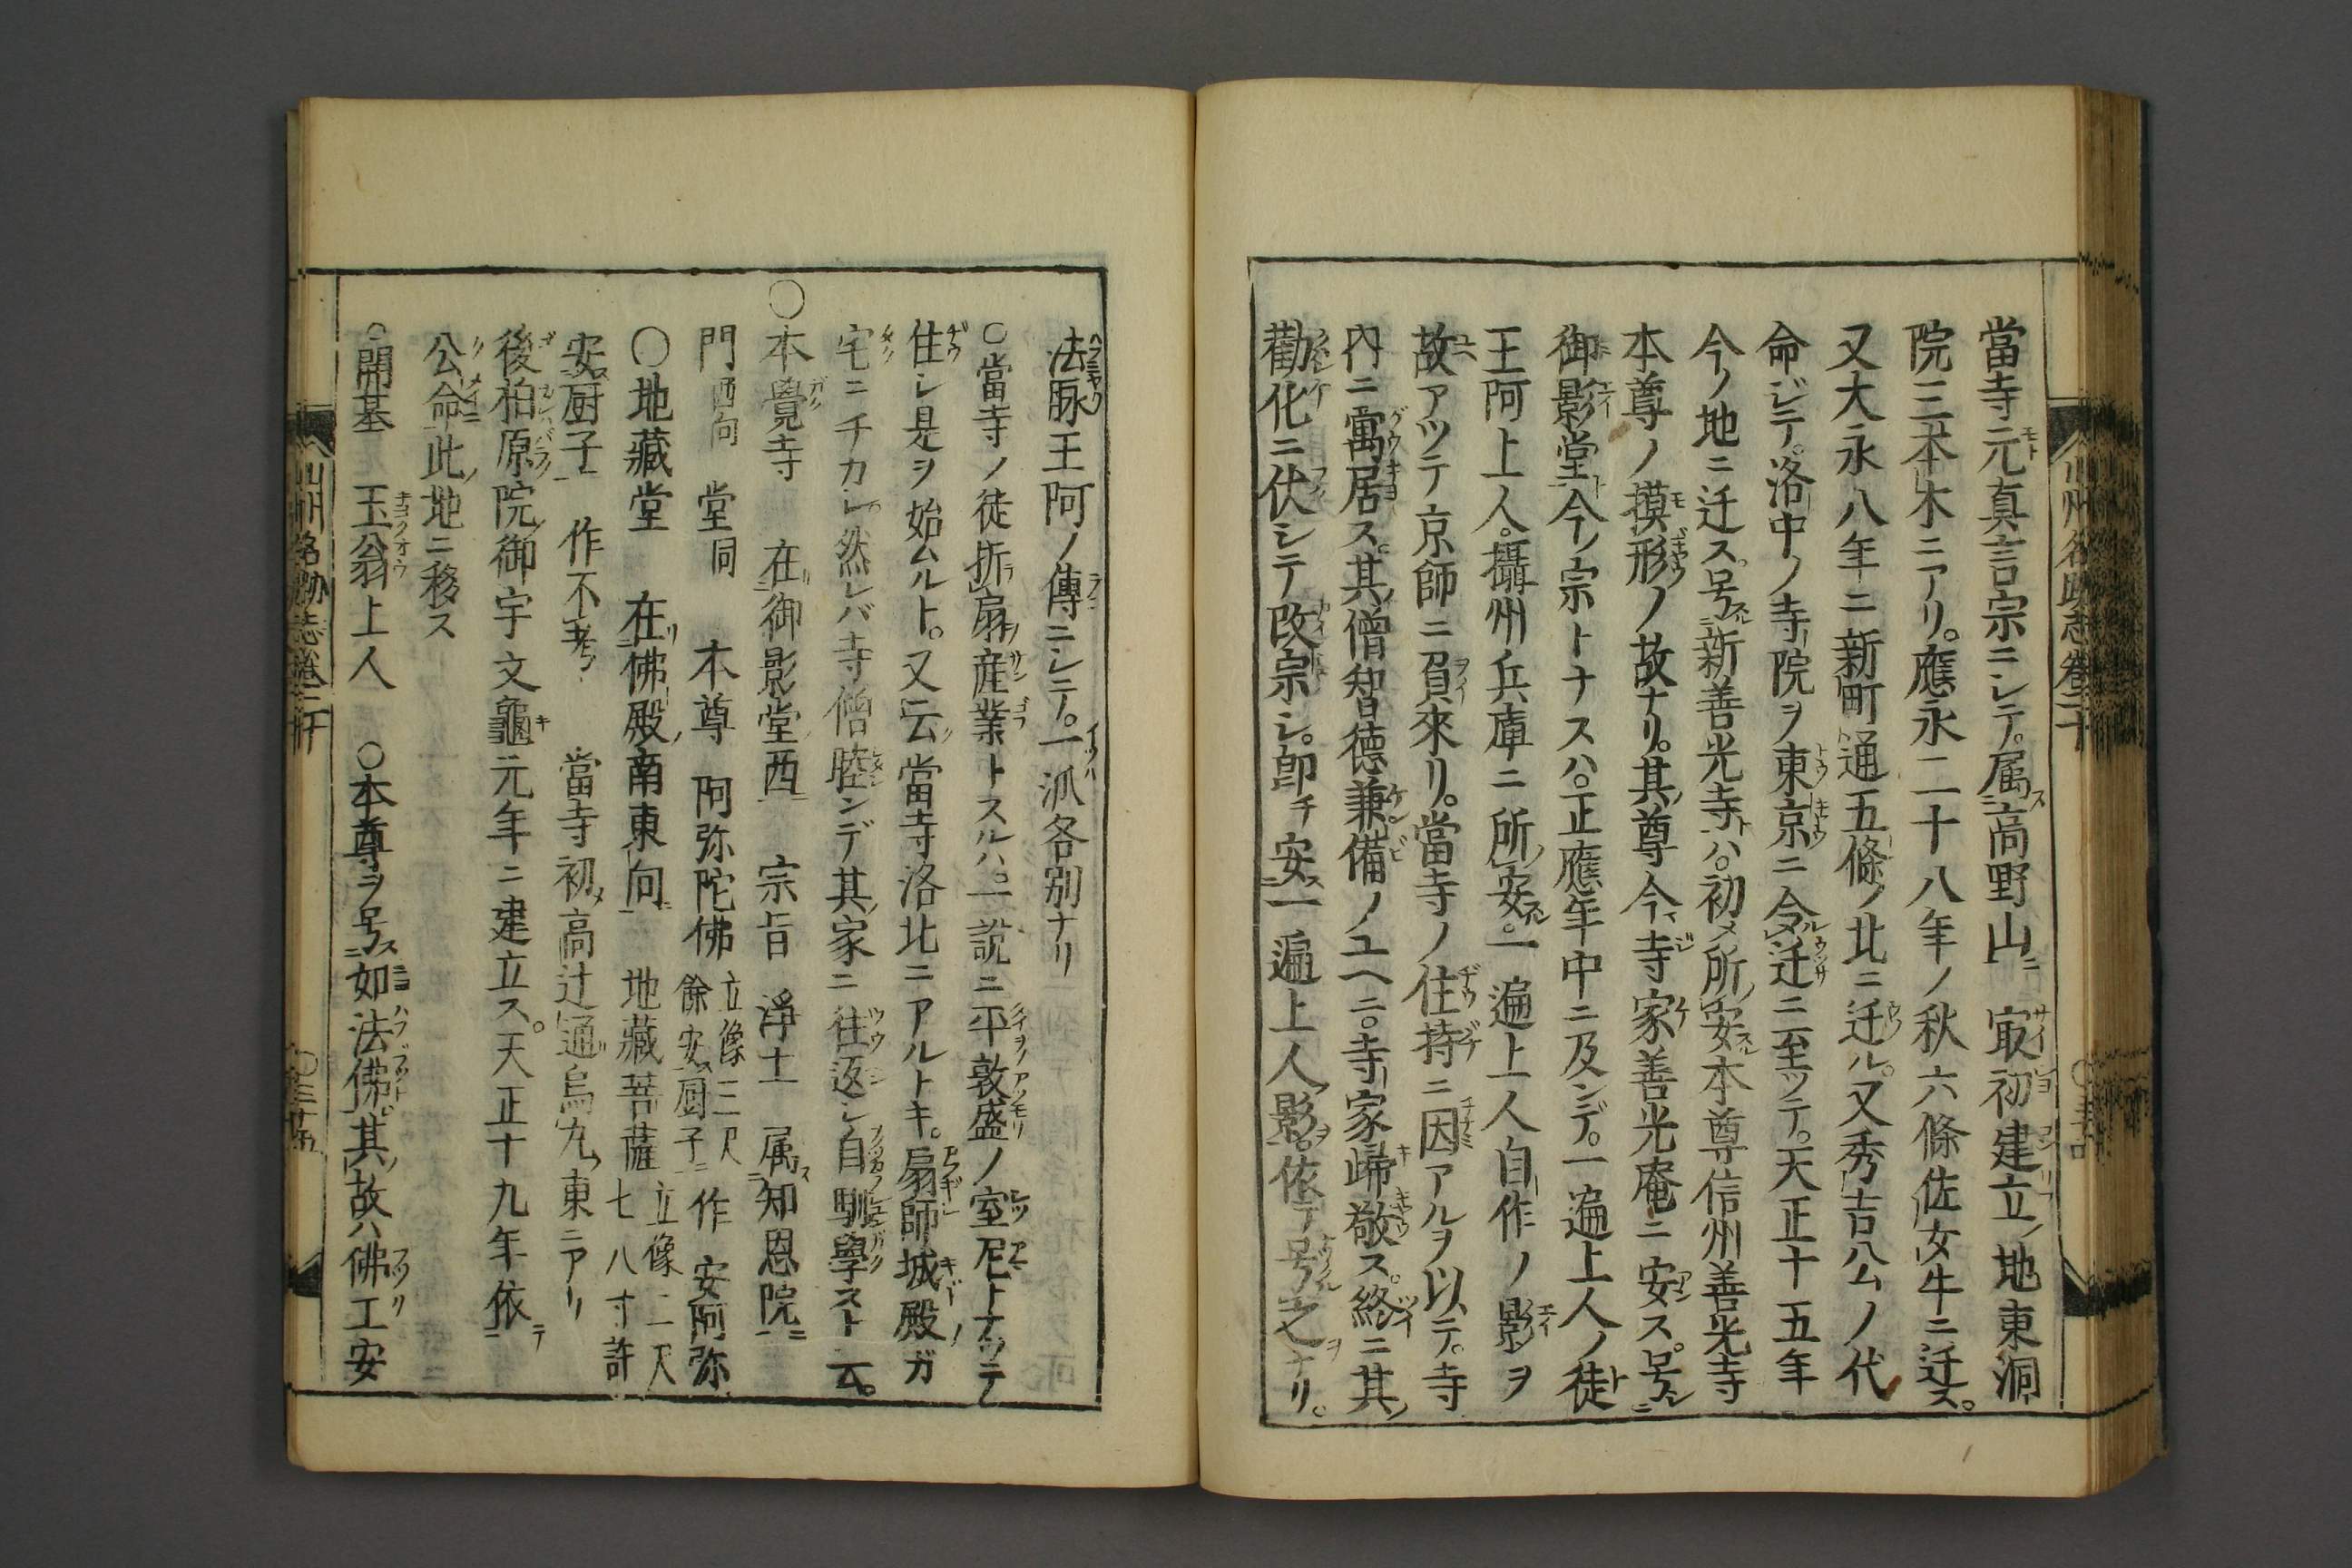 當寺元真言宗ニシテ。属高野山ニ 㝡初建立ノ地東洞
院三本木ニアリ。應永二十八年ノ秋六條佐女牛ニ迁ス。
又大永八年ニ新町通五條ノ北ニ迁ル。又秀吉公ノ代
命ジテ。洛中ノ寺院ヲ東京ニ令迁ニ至ッテ。天正十五年
今ノ地ニ迁ス。号新善光寺ハ。初メ所安本尊信州善光寺
本尊ノ摸形ノ故ナリ。其尊今寺家善光庵ニ安ス。号
御影堂今ノ宗トナスハ。正應年中ニ及ンデ。一遍上人ノ徒
王阿上人。攝州兵庫ニ所安。一遍上人自作ノ影ヲ
故アツテ京師ニ負來リ。當寺ノ住持ニ因アルヲ以テ。寺
内ニ寓居ス。其僧智徳兼備ノユヘニ。寺家歸敬ス。終ニ其
勸化ニ伏シテ改宗シ。即チ安一遍上人影。依テ号之ナリ。
法脉王阿ノ傳ニシテ。一派各別ナリ
○當寺ノ徒折扇産業トスルハ。一説ニ平敦盛ノ室尼トナッテ
住シ是ヲ始ムルト。又云當寺洛北ニアルトキ。扇師城殿ガ
宅ニチカシ然レバ寺僧睦ンデ其家ニ往返シ自馴學スト云。
○本覺寺 在御影堂西 宗旨 淨土 属知恩院
門西向 堂同 本尊 阿弥陀佛 立像三尺餘安厨子 作 安阿弥
○地藏堂 在佛殿南東向 地藏菩薩 立像二尺七八寸許
安厨子 作不考 當寺初高辻通烏丸東ニアリ
後柏原院御宇文龜元年ニ建立ス。天正十九年依
公命此地ニ移ス
○開基 玉翁上人 ○本尊ヲ号如法佛其故ハ佛工安
山州名跡志巻二十